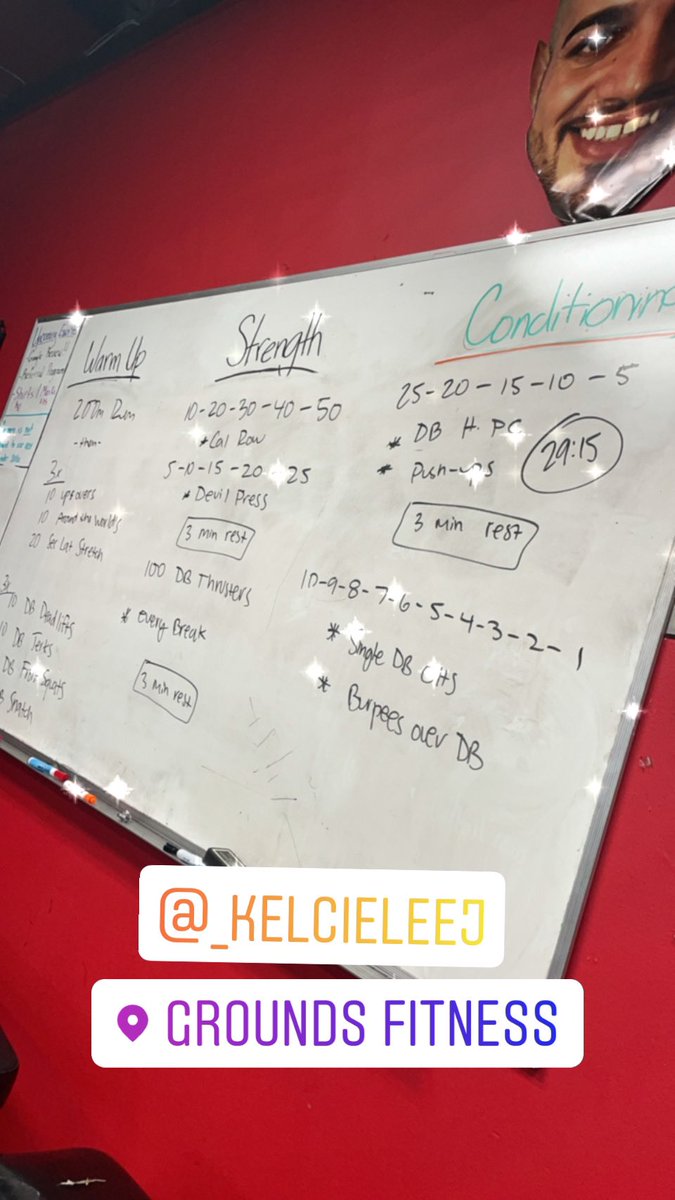 Upcoming Events
Warm Up
200m Run
-then-
3x
10 up+overs
10 Around the Worlds
20 Sec Lat Stretch
3x
10 DB Deadlifts
10 DB Jerks
DB Front Squats
Snatch
Strength
10-20-30-40-50
*Cal Row
5-10-15-20-25
*Devil Press
3 min rest
100 DB Thrusters
*every Break
3 min rest
Conditioning
25-20-15-10-5
* DB H. PC
* Push-ups
29:15
3 min rest
10-9-8-7-6-5-4-3-2-1
* Single DB
* Burpees over DB
@_KELCIELEEJ
GROUNDS FITNESS